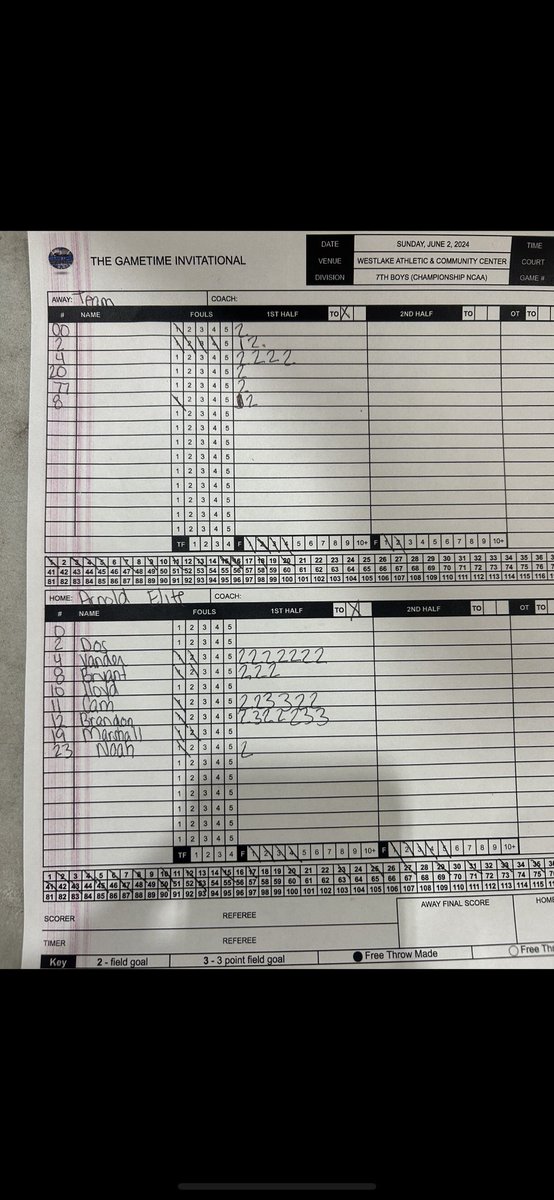 DATE SUNDAY, JUNE 2, 2024 TIME
THE GAMETIME INVITATIONAL VENUE WESTLAKE ATHLETIC & COMMUNITY CENTER COURT
DIVISION 7TH BOYS (CHAMPIONSHIP NCAA) GAME #
AWAY: Team COACH:
# NAME FOULS 1ST HALF TO X 2ND HALF TO OT TO
00 1 2 3 4 5 2
2 1 2 3 4 5 2
4 1 2 3 4 5 2 2 2 2
20 1 2 3 4 5 2
77 1 2 3 4 5 2
8 1 2 3 4 5 2
1 2 3 4 5
1 2 3 4 5
1 2 3 4 5
1 2 3 4 5
1 2 3 4 5
1 2 3 4 5
1 2 3 4 5
1 2 3 4 5
1 2 3 4 5
TF 1 2 3 4 F 1 2 3 4 5 6 7 8 9 10+ F 1 2 3 4 5 6 7 8 9 10+
1 2 3 4 5 6 7 8 9 10 11 12 13 14 15 16 17 18 19 20 21 22 23 24 25 26 27 28 29 30 31 32 33 34 35 36
41 42 43 44 45 46 47 48 49 50 51 52 53 54 55 56 57 58 59 60 61 62 63 64 65 66 67 68 69 70 71 72 73 74 75 76
81 82 83 84 85 86 87 88 89 90 91 92 93 94 95 96 97 98 99 100 101 102 103 104 105 106 107 108 109 110 111 112 113 114 115 116
HOME: Arnold Elite COACH:
# NAME FOULS 1ST HALF TO X 2ND HALF TO OT TO
0 1 2 3 4 5
2 Dos 1 2 3 4 5
4 Vander 1 2 3 4 5 2 2 2 2 2 2 2
8 Bryant 1 2 3 4 5 2 2 2
10 Lloyd 1 2 3 4 5
11 Cam 1 2 3 4 5 2 2 3 3 2 2
12 Brandon 1 2 3 4 5 2 3 2 2 2 3 3
19 Marshall 1 2 3 4 5
23 Noah 1 2 3 4 5 2
1 2 3 4 5
1 2 3 4 5
1 2 3 4 5
1 2 3 4 5
1 2 3 4 5
1 2 3 4 5
TF 1 2 3 4 F 1 2 3 4 5 6 7 8 9 10+ F 1 2 3 4 5 6 7 8 9 10+
1 2 3 4 5 6 7 8 9 10 11 12 13 14 15 16 17 18 19 20 21 22 23 24 25 26 27 28 29 30 31 32 33 34 35 36
41 42 43 44 45 46 47 48 49 50 51 52 53 54 55 56 57 58 59 60 61 62 63 64 65 66 67 68 69 70 71 72 73 74 75 76
81 82 83 84 85 86 87 88 89 90 91 92 93 94 95 96 97 98 99 100 101 102 103 104 105 106 107 108 109 110 111 112 113 114 115 116
SCORER REFEREE AWAY FINAL SCORE HOME
TIMER REFEREE
Key 2 - field goal 3 - 3 point field goal Free Throw Made Free